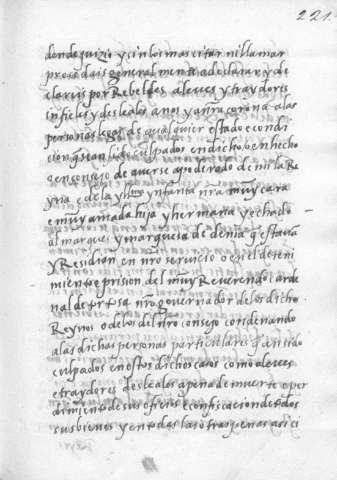 221.
donde juizio y sin los mas citar ni llamar
procedais general mente a declarar y de
clareis por Rebeldes aleves y traydores
infieles y desleales a nos y a nra corona a las
personas legas de qualquier estado e condi
cion q sean q han sido culpados en dicho o en hecho
o en consejo de averse apoderado de mi la Re
yna e de la yllma ynfanta nra muy cara
e muy amada hija y hermana y echado
al marques y marquesa de denia q estavan
y Residian en nro servicio o en el deteni
miento e prision del muy Reverendo carde
nal de tortosa nro governador de los dichos
Reynos o de los del nro consejo condenando
a las dichas personas particulares q an sido
culpados en estos dichos casos como aleves
e traydores e desleales a pena de muerte e per
dimiento de sus oficios e confiscacion de todos
sus bienes y en todas las otras penas asi ci